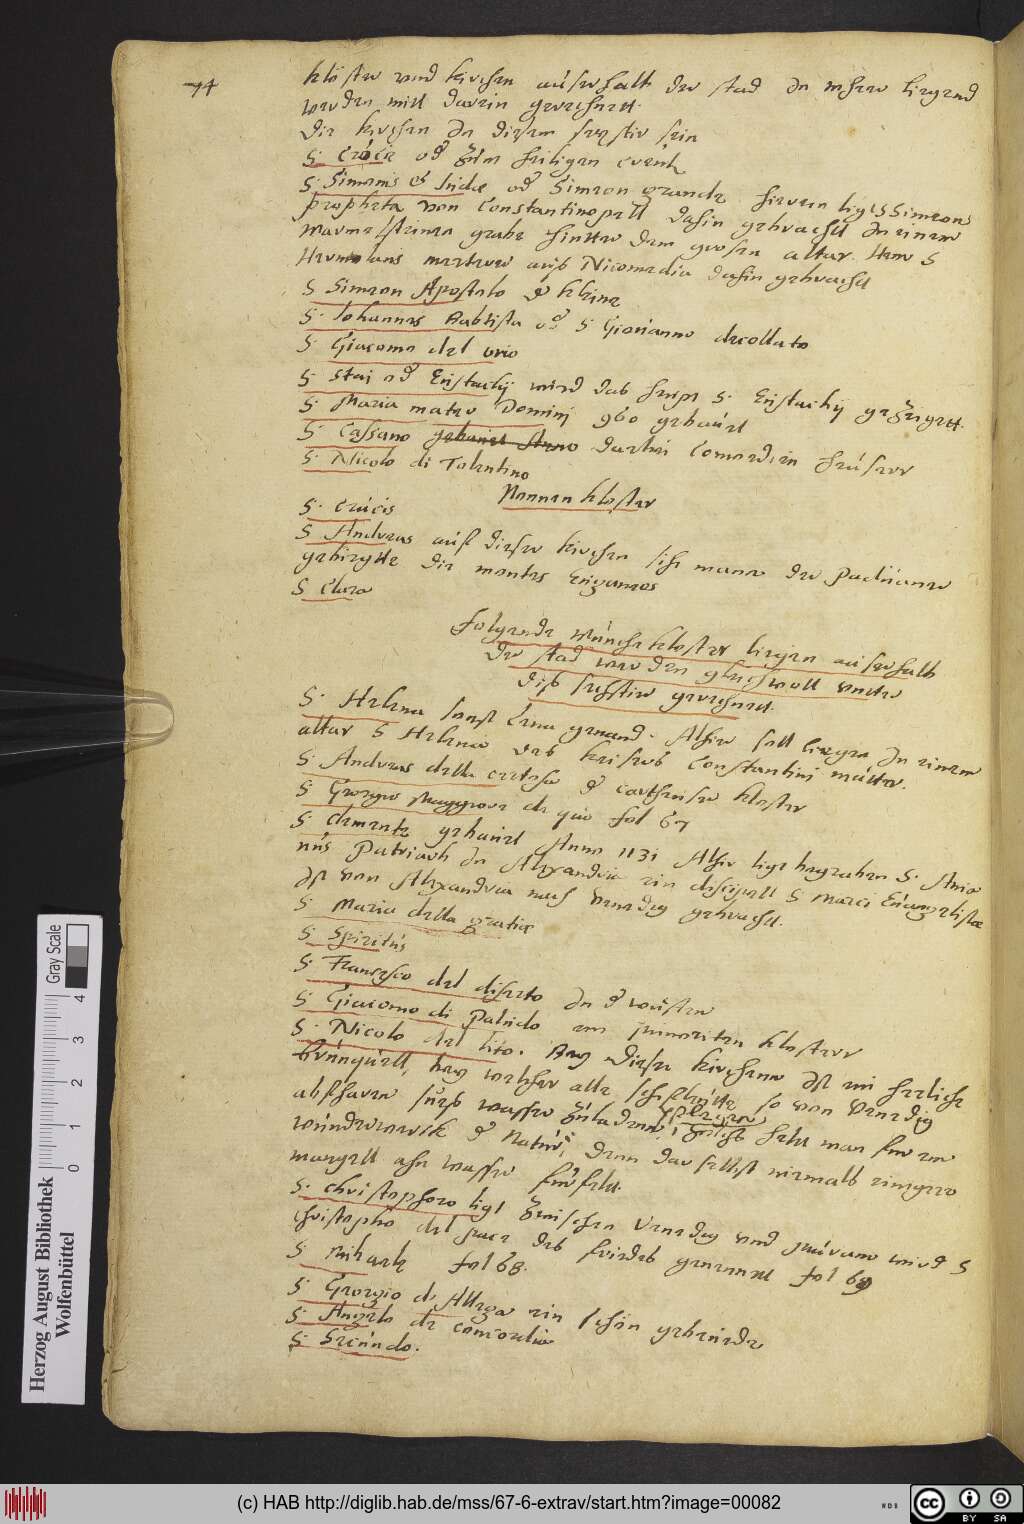 74
klöster vnd kirchen auserhalb der stad in meher liegend
werden mitt darein gerechnett.
Die kirchen in diesem sechstir sein
S. Crucis oder zum heiligen creutz
S. Simonis et Iudæ oder Simeon grande hierin ligt S Simeons
propheta von Constantinopell dahin gebracht in einem
marmelsteinen grabe hintter dem grosen altar. Item S
Hermolaus marterer aus Nicomedia dahin gebracht
S Simeon Apostolo der kleine
S. Iohannes Babtista oder S Giouanno decollato
S. Giacomo del orio
S. Stai oder Eustachij wird das heupt S. Eustachij gezeigett.
S. Maria mater Domini 960 gebauet
S. Cassano darbei Comedein heuser
S. Nicolo di Tolentino
Nonnen kloster
S. Crucis
S Andreas auf dieser kirchen sihe mann der Paduaner
gebirgtte die montes Euganeos
S Clara
Folgende münche kloster liegen auserhalb
der stad werden gleichwoll vntter
dis sechstir gerechnett.
S. Helena sonst Lena genand. Alhier soll liegen in einem
altar S Helenæ des keisers Constantini mutter.
S. Andreas della certosa der cartheuser kloster
S. Georgio Maggiore de quo fol 67
S. Clemente gebauet Anno 1131 Alhir ligt begraben S. Ania
nus Patriarch in Alexandria ein discipell S Marci Euangelistæ
ist von Alexandria nach Venedig gebracht.
S. Maria della gratia
S. Spiritus
S. Francesco del diserto in der wusten
S. Giacomo di Paludo ein minoriten kloster
S. Nicolo del lito. Bey dieser kirchenn ist ein herliche
brunquell, bey welcher alle schifleutte so von Venedig
abfharen sües wasser zuladenn,
wunderwerck der Natur, denn dar selbst niemals einigero
mangell ahn wasser fürfelt.
S. Christophoro ligt zwischen Venedig vnd murano wird S
Christopho del pace des friedes genennet fol 69
S. Michaele fol 68.
S. Georgio de Allega ein schön gebeude
S. Angelo de concordia
S. Secundo.
Herzog August Bibliothek
Wolfenbüttel
Gray Scale
0 1 2 3 4
(c) HAB http://diglib.hab.de/mss/67-6-extrav/start.htm?image=00082
WDB
cc BY SA